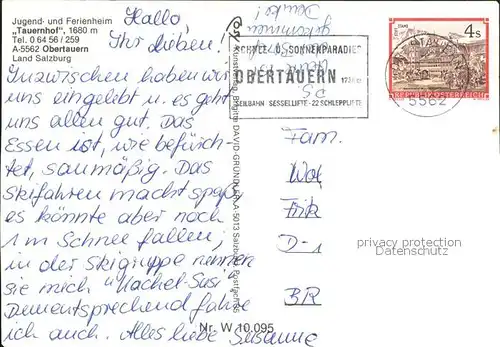 Jugend- und Ferienheim
„Tauernhof", 1680 m
Tel. 0 64 56 / 259
A-5562 Obertauern
Land Salzburg
Hallo,
Ihr Lieben!
Inzwischen haben wir
uns eingelebt u. es geht
uns allen gut. Das
Essen ist, wie befürch-
tet, saumäßig. Das
Skifahren macht Spaß
es könnte aber noch
1 m Schnee fallen;
in der Skigruppe nennen
sie mich "Kachel-Susi"
Dementsprechend fahre
ich auch. Alles liebe Susanne
Kunstverlag Brigitte DAVID-GRÜNDLER, A-5013 Salzburg, Postfach
Nr. W 10.095
gekommen
Danke!
PS
SCHNEE- U. SONNENPARADIES
OBERTAUERN
SEILBAHN SESSELLIFTE - 22 SCHLEPPLIFTE
4 S
REPUBLIK ÖSTERREICH
5562
Fam.
Wol
Erik
D-1
BR
privacy protection
Datenschutz